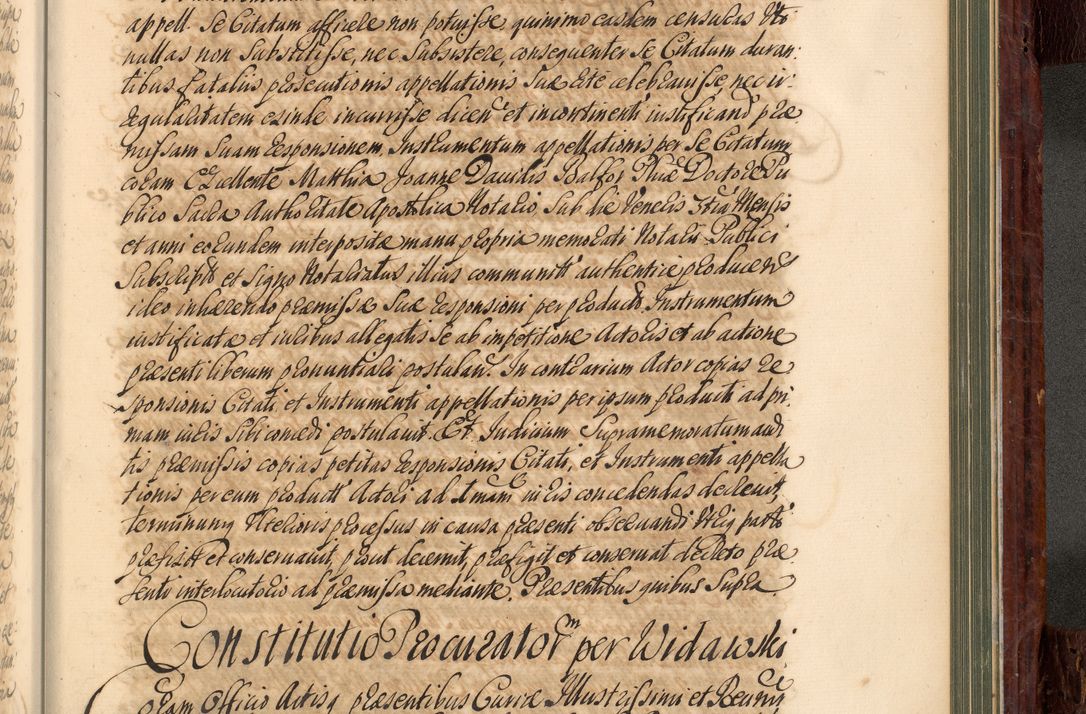 appell. se Citatum afficere non potuisse, quinimo easdem censuras uto
nullas non substitisse, nec subsistere, consequenter se Citatum duran:
tibus fataliis prosecutionis appellationis suæ rite celebravisse, nec ir:
regularitatem exinde incurrisse dicen et incontinenti iustificand præ
missam suam responsionem. Instrumentum appellationis per se Citatum
coram Excellente Matthia Joanne Davidis Balfor Phiæ Doctore Pu
blico Sacra Authoritate Apostolica Notario sub die Veneris Mensis
et anni eorundem interpositæ manu propria memorati Notarii Publici
subscript et signo Notariatus illius communit authentice producen
ideo inhærendo præmissæ suæ responsioni per product Instrumentum
iustificatæ et iuribus allegatis se ab impetitione Actoris et ab actione
præsenti liberum pronuntiari postulavit. In contrarium Actor copias re
sponsionis Citati, et Instrumenti appellationis per ipsum producti ad pri:
mam iuris sibi concedi postulavit. Et Judicium Supramemoratum audi
tis præmissis copias petitas responsionis Citati, et Instrumenti appella
tionis per eum product Actori ad 1mam iuris concedendas decrevit,
terminumq ulterioris processus in causa præsenti observandi utriq parti
præfixit et conservavit, prout decernit, præfigit et conservat decreto præ
senti interlocutorio ad præmissa mediante. Præsentibus quibus supra
Constitutio Procuratorm per Widawski
Coram Officio Actisq præsentibus Curiæ Illustrissimi et Reverm